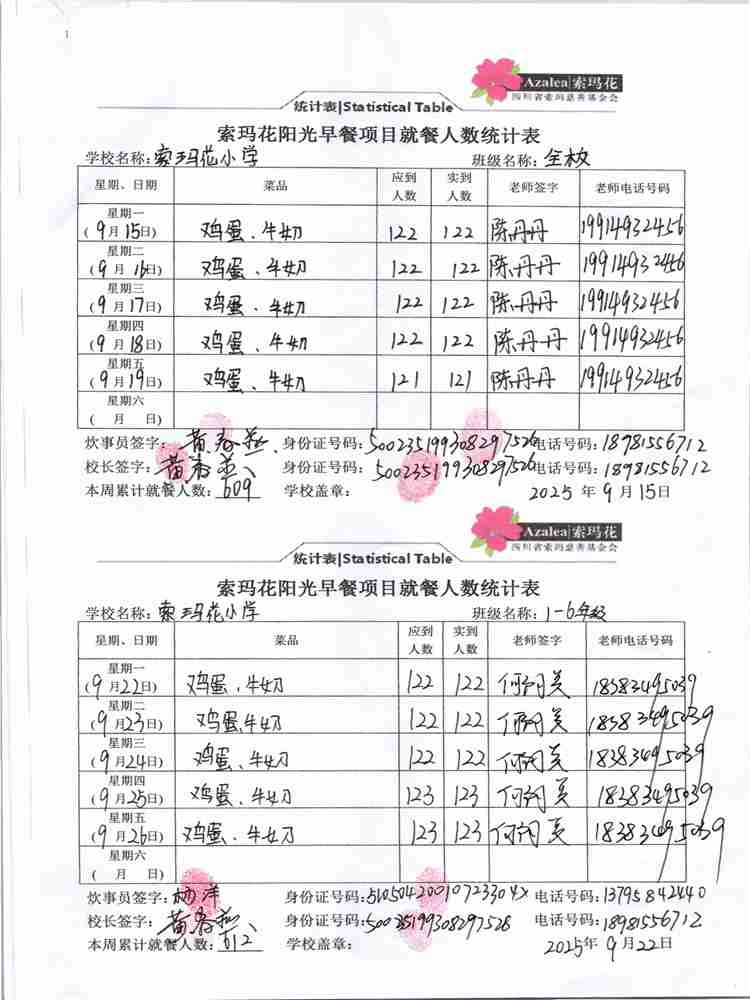 1
Azalea|索玛花
四川省索玛慈善基金会
统计表|Statistical Table
索玛花阳光早餐项目就餐人数统计表
学校名称:索玛花小学 班级名称:全校
星期、日期 菜品 应到人数 实到人数 老师签字 老师电话号码
星期一
(9月15日) 鸡蛋、牛奶 122 122 陈丹丹 19914932456
星期二
(9月16日) 鸡蛋、牛奶 122 122 陈丹丹 19914932456
星期三
(9月17日) 鸡蛋、牛奶 122 122 陈丹丹 19914932456
星期四
(9月18日) 鸡蛋、牛奶 122 122 陈丹丹 19914932456
星期五
(9月19日) 鸡蛋、牛奶 121 121 陈丹丹 19914932456
星期六
( 月 日)
炊事员签字: 身份证号码:500235199308297526 电话号码:18981556712
校长签字: 身份证号码:500235199308297526 电话号码:18981556712
本周累计就餐人数:609 学校盖章: 2025年9月15日
Azalea|索玛花
四川省索玛慈善基金会
统计表|Statistical Table
索玛花阳光早餐项目就餐人数统计表
学校名称:索玛花小学 班级名称:1-6年级
星期、日期 菜品 应到人数 实到人数 老师签字 老师电话号码
星期一
(9月22日) 鸡蛋、牛奶 122 122 18383495039
星期二
(9月23日) 鸡蛋、牛奶 122 122 18383495039
星期三
(9月24日) 鸡蛋、牛奶 122 122 18383495039
星期四
(9月25日) 鸡蛋、牛奶 123 123 18383495039
星期五
(9月26日) 鸡蛋、牛奶 123 123 18383495039
星期六
( 月 日)
炊事员签字:杨洋 身份证号码:51050420010723304X 电话号码:13795842440
校长签字: 身份证号码:500235199308297528 电话号码:18981556712
本周累计就餐人数:612 学校盖章: 2025年9月22日